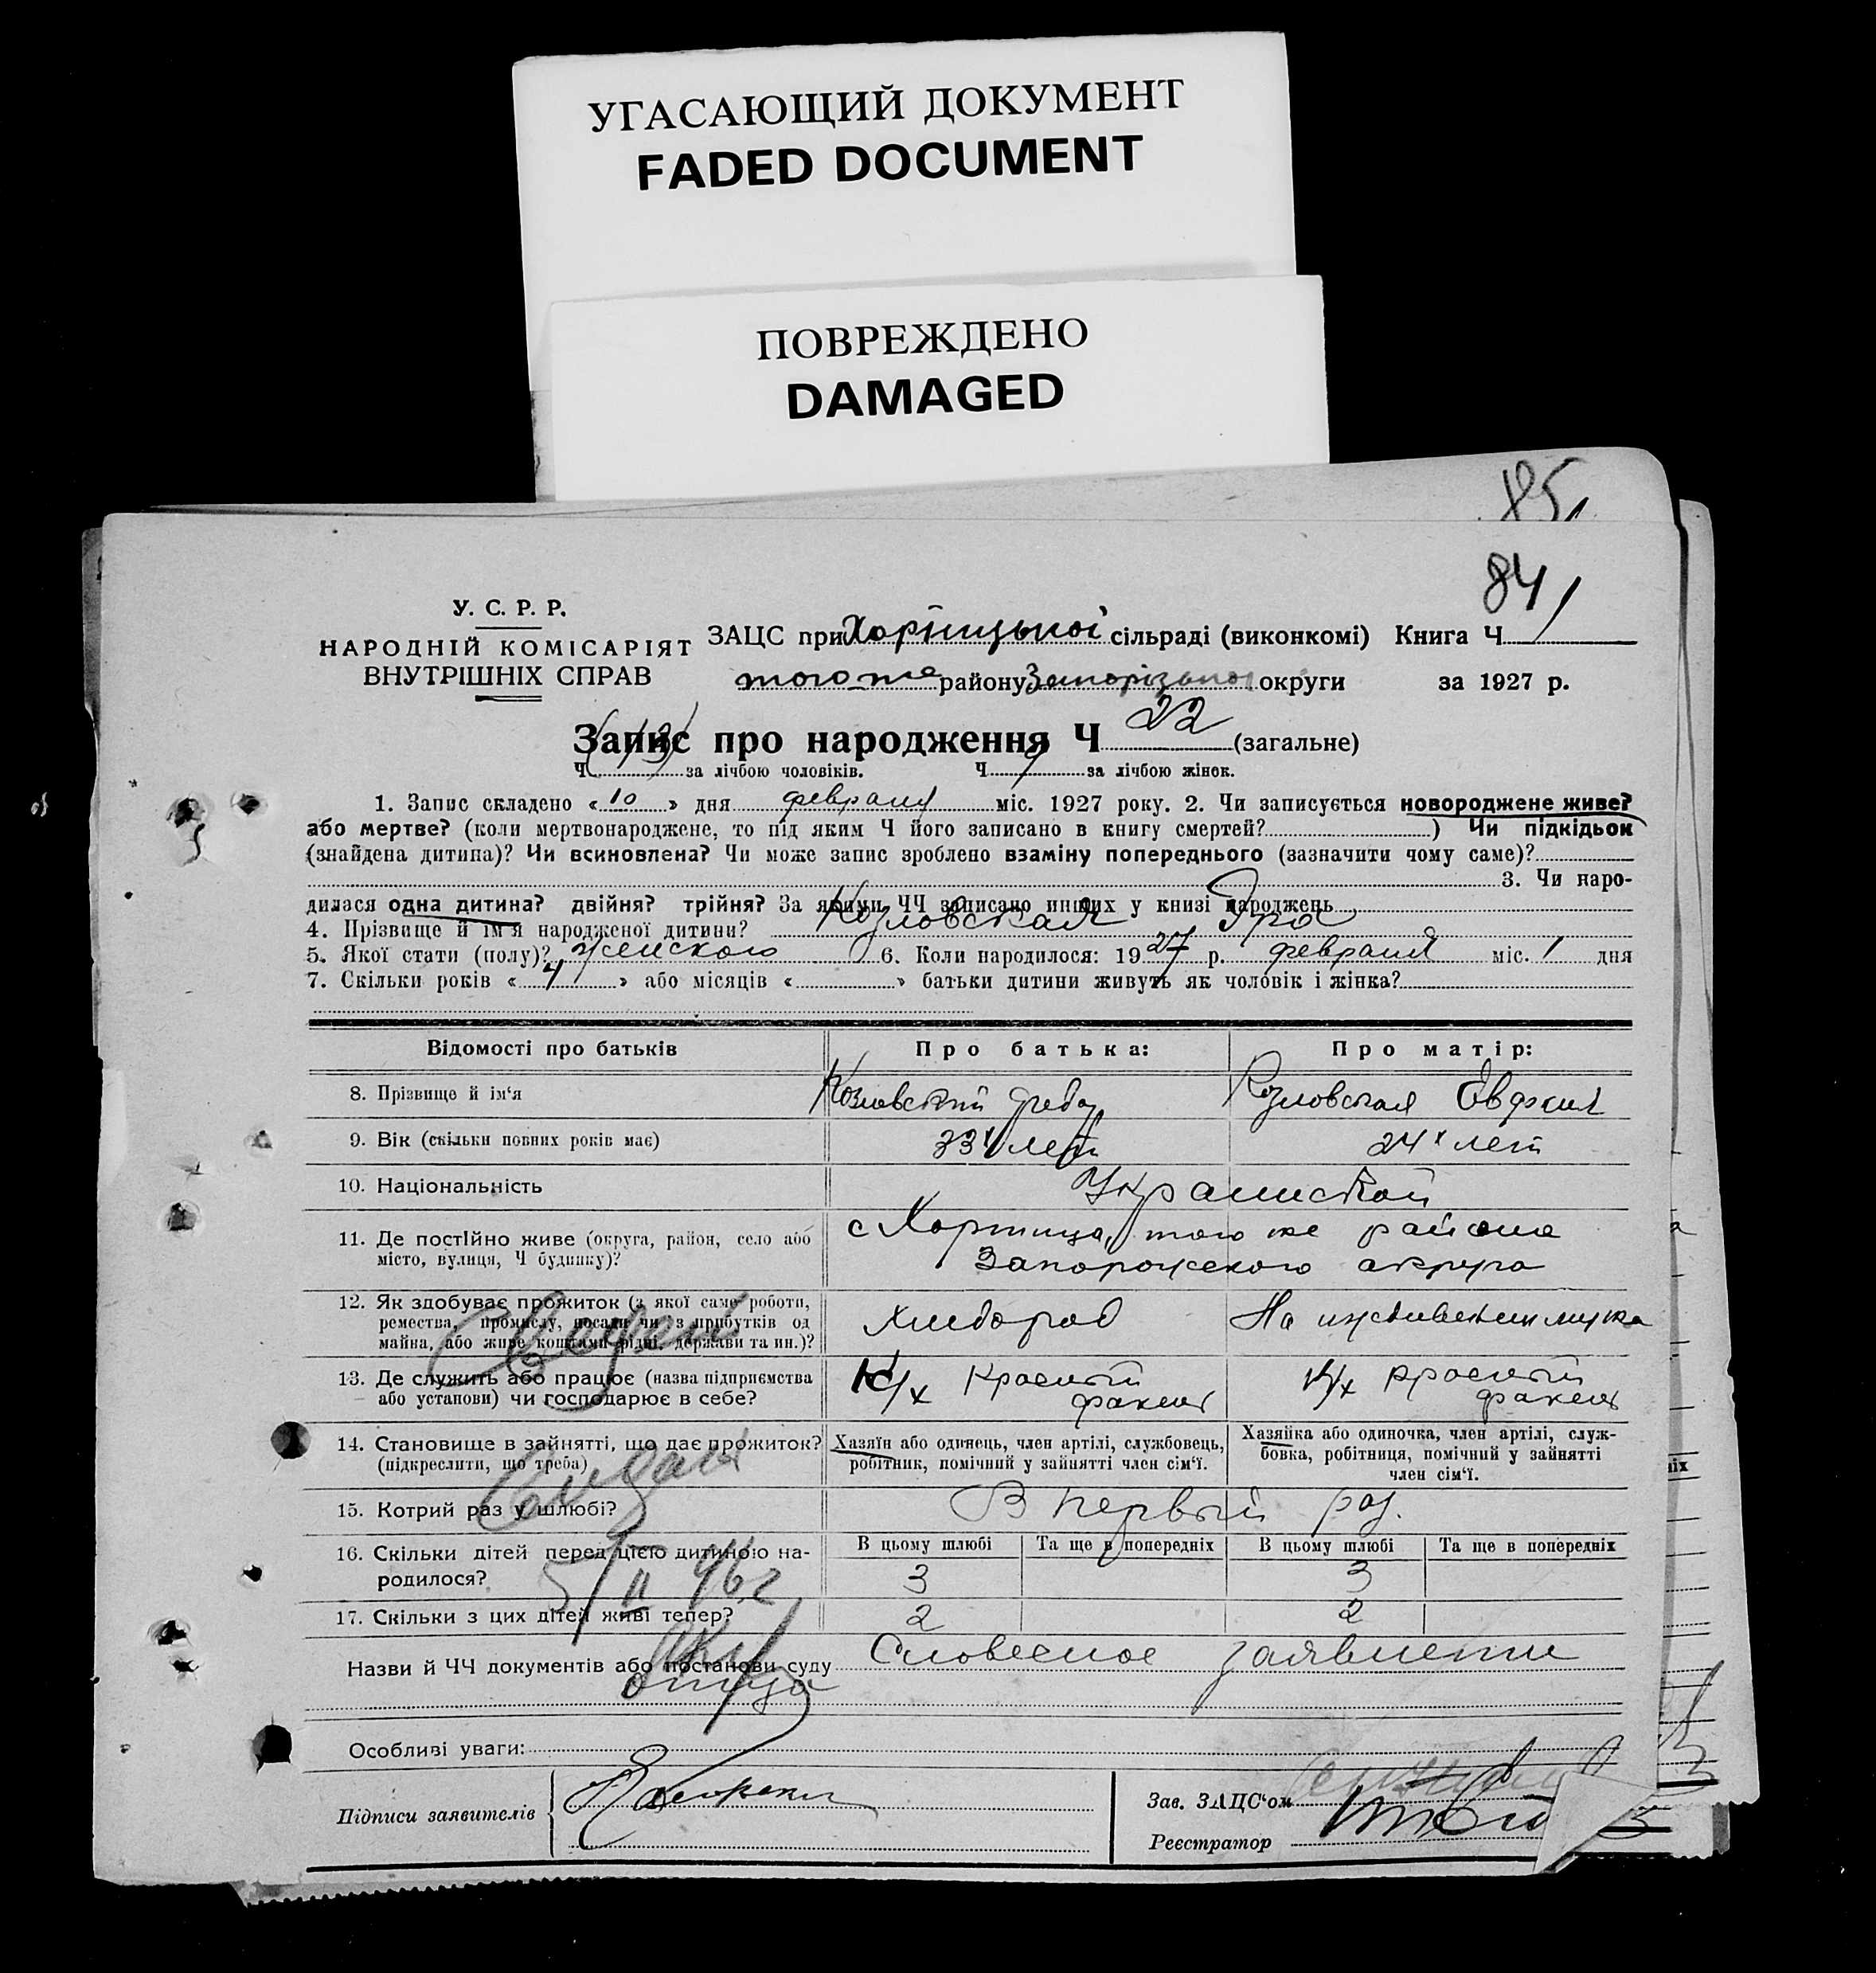 УГАСАЮЩИЙ ДОКУМЕНТ
FADED DOCUMENT
ПОВРЕЖДЕНО
DAMAGED
85
84
У. С. Р. Р.
НАРОДНІЙ КОМІСАРІЯТ
ВНУТРІШНІХ СПРАВ
ЗАЦС при Хортицької сільраді (виконкомі) Книга Ч
того же району Запорізької округи за 1927 р.
Запис про народження Ч 22 (загальне)
Ч 13 за лічбою чоловіків. Ч 9 за лічбою жінок.
1. Запис складено « 10 » дня февраля міс. 1927 року. 2. Чи записується новороджене живе?
або мертве? (коли мертвонароджене, то під яким Ч його записано в книгу смертей? ) Чи підкідьок
(знайдена дитина)? Чи всиновлена? Чи може запис зроблено взаміну попереднього (зазначити чому саме)?
3. Чи наро-
дилася одна дитина? двійня? трійня? За якими ЧЧ записано инших у книзі народжень
4. Прізвище й ім'я народженої дитини? Козловская
5. Якої стати (полу)? женского 6. Коли народилося: 1927 р. февраля міс. 1 дня
7. Скільки років « 4 » або місяців « » батьки дитини живуть як чоловік і жінка?
Відомості про батьків Про батька: Про матір:
8. Прізвище й ім'я Козловский Козловская
9. Вік (скільки повних років має) 33 лет 24 лет
10. Національність
11. Де постійно живе (округа, район, село або с Хортица, того же района
місто, вулиця, Ч будинку)? Запорожского округа
12. Як здобуває прожиток (з якої саме роботи,
ремества, промислу, посади чи з прибутків од
майна, або живе коштами рідні, держави та ин.)?
Хлебороб На иждивении мужа
13. Де служить або працює (назва підприємства К/х Красный К/х Красный
або установи) чи господарює в себе? факел факел
14. Становище в зайнятті, що дає прожиток?
(підкреслити, що треба)
Хазяїн або одинець, член артілі, службовець,
робітник, помічний у зайнятті член сім'ї.
Хазяйка або одиночка, член артілі, служ-
бовка, робітниця, помічний у зайнятті
член сім'ї.
15. Котрий раз у шлюбі? В первый раз.
16. Скільки дітей перед цією дитиною на-
родилося?
В цьому шлюбі Та ще в попередніх В цьому шлюбі Та ще в попередніх
3 3
17. Скільки з цих дітей живі тепер? 2 2
5/II 46 г
Назви й ЧЧ документів або постанови суду Словесное заявление
Особливі уваги:
Підписи заявителів
Зав. ЗАЦС'ом
Реєстратор